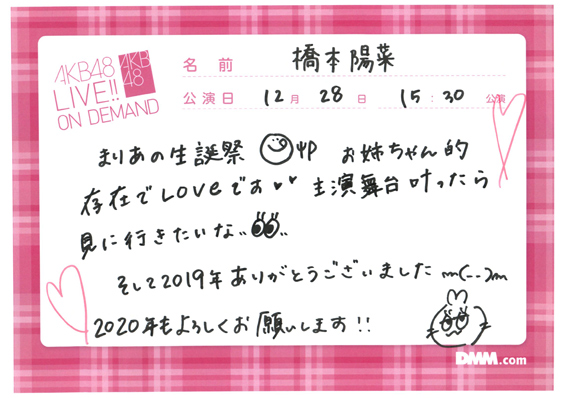 AKB48
LIVE!!
ON DEMAND
AKB
48
名前 橋本陽菜
公演日 12月 28日 15:30 公演
まりあの生誕祭 お姉ちゃん的
存在でLOVEです♥♥ 主演舞台叶ったら
見に行きたいな..
そして2019年ありがとうございました m(_ _)m
2020年もよろしくお願いします!!
DMM.com